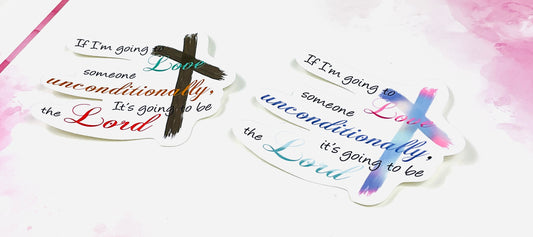 If I'm going to
Love
someone
unconditionally,
It's going to be
the Lord
If I'm going to
Love
someone
unconditionally,
it's going to be
the Lord